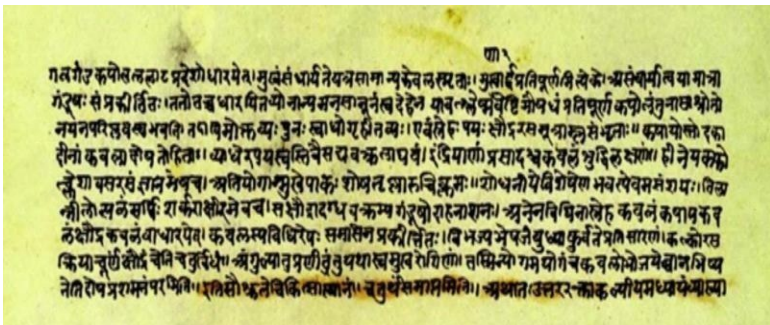 णा२
गलगंडकपोलललाटप्रदेशोधारयेत्। मुखंसंधार्यतेयत्रसामान्यकवलस्मृताः। मुखार्द्धप्रतिपूर्णमित्येको। असंचार्यातुयामात्रा
गंडूषः संप्रकीर्तितः। यावल्लेष्म प्रतिपूर्णकपोलंतुनासाश्रोतो
नयनपरिप्लवश्चभवति। विमोक्तव्यः पुनः गृहीतव्यः। एवंस्नेहपयः क्षौद्ररसमूत्राम्लसंभृताः॥ कषायोष्णोदका
दीनांकवलादोषतोहिताः॥ व्याधेरपचयस्तुष्टिर्वैसद्यवक्त्रलाघवं। इंद्रियाणांप्रसादश्चकवलेशुद्धिलक्षणं॥ हीनेयकफो
त्क्लेशावसरसंज्ञानमेवच। अतियोगान्मुखेपाकः शोषतृष्णारुचिक्लमः॥ शोधनीयेविशेषेणभवत्येवमसंशयः। तिला
नीलोत्पलंसर्पिःशर्कराक्षीरमेवच। सक्षौद्रादग्धवक्त्रस्यगंडूषोदाहनाशनः। अनेनविधिनास्नेहकवलंकषायकव
लंक्षौद्रकवलंवाधारयेत्। कवलस्यविधिरेषः समासेनप्रकीर्तितः। विभज्यभेषजंबुध्याकुर्वतेप्रतिसारणं। कल्कोरस
क्रियाचूर्णंक्षौद्रंचेतिचतुर्विधं॥ अंगुल्यातुप्रणीतंतुयथास्वमुखरोगिणां। तस्मिन्योगमयोगंचकवलोभोजयेत्वानभिष्य
नेतिदोषप्रशमनं इतिसौश्रुतेचिकित्सास्थानं। चतुर्थंसमाप्तमिति॥ अथातउत्तर